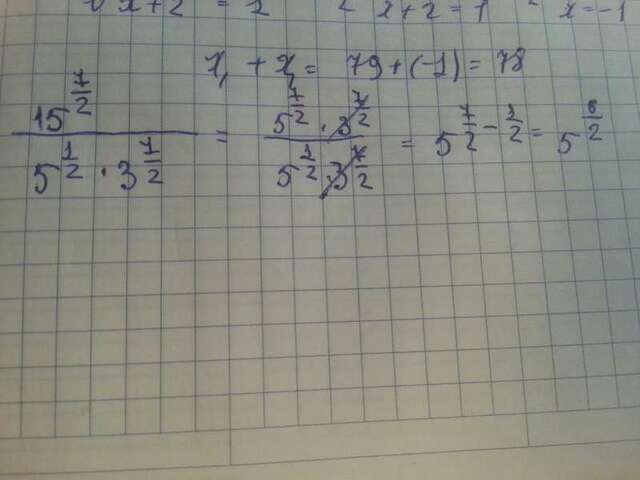 √x+2 = 1 x+2 = 1 x=-1
x₁ + x₂ = 79+(-1) = 78
15^(7/2) / (5^(1/2) · 3^(7/2)) = (5^(7/2) · 3^(7/2)) / (5^(1/2) · 3^(7/2)) = 5^(7/2 - 1/2) = 5^(6/2)